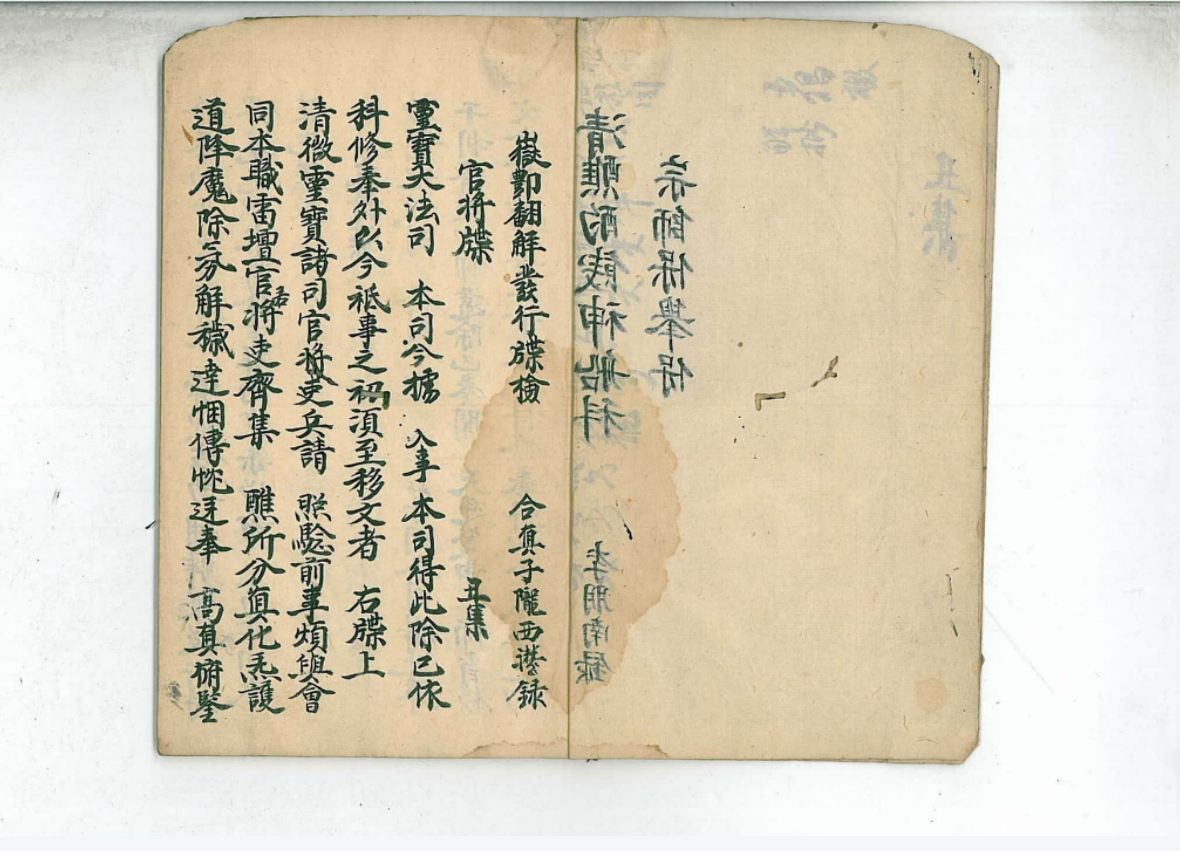 丑集
宗師保舉
清醮酌餞神船科 李朋南録
嶽酆翻解發行牒檢 合真子隴西 録
官將牒 丑集
靈寶大法司 本司今據 入事本司得此除已依
科修奉外以今祗事之初須至移文者 右牒上
清微靈寶諸司官將吏兵請 照驗前事煩與會
同本職雷壇官將吏齊集 醮所分真化炁護
道降魔除氛解穢達悃傳忱迓奉 高真俯鑒